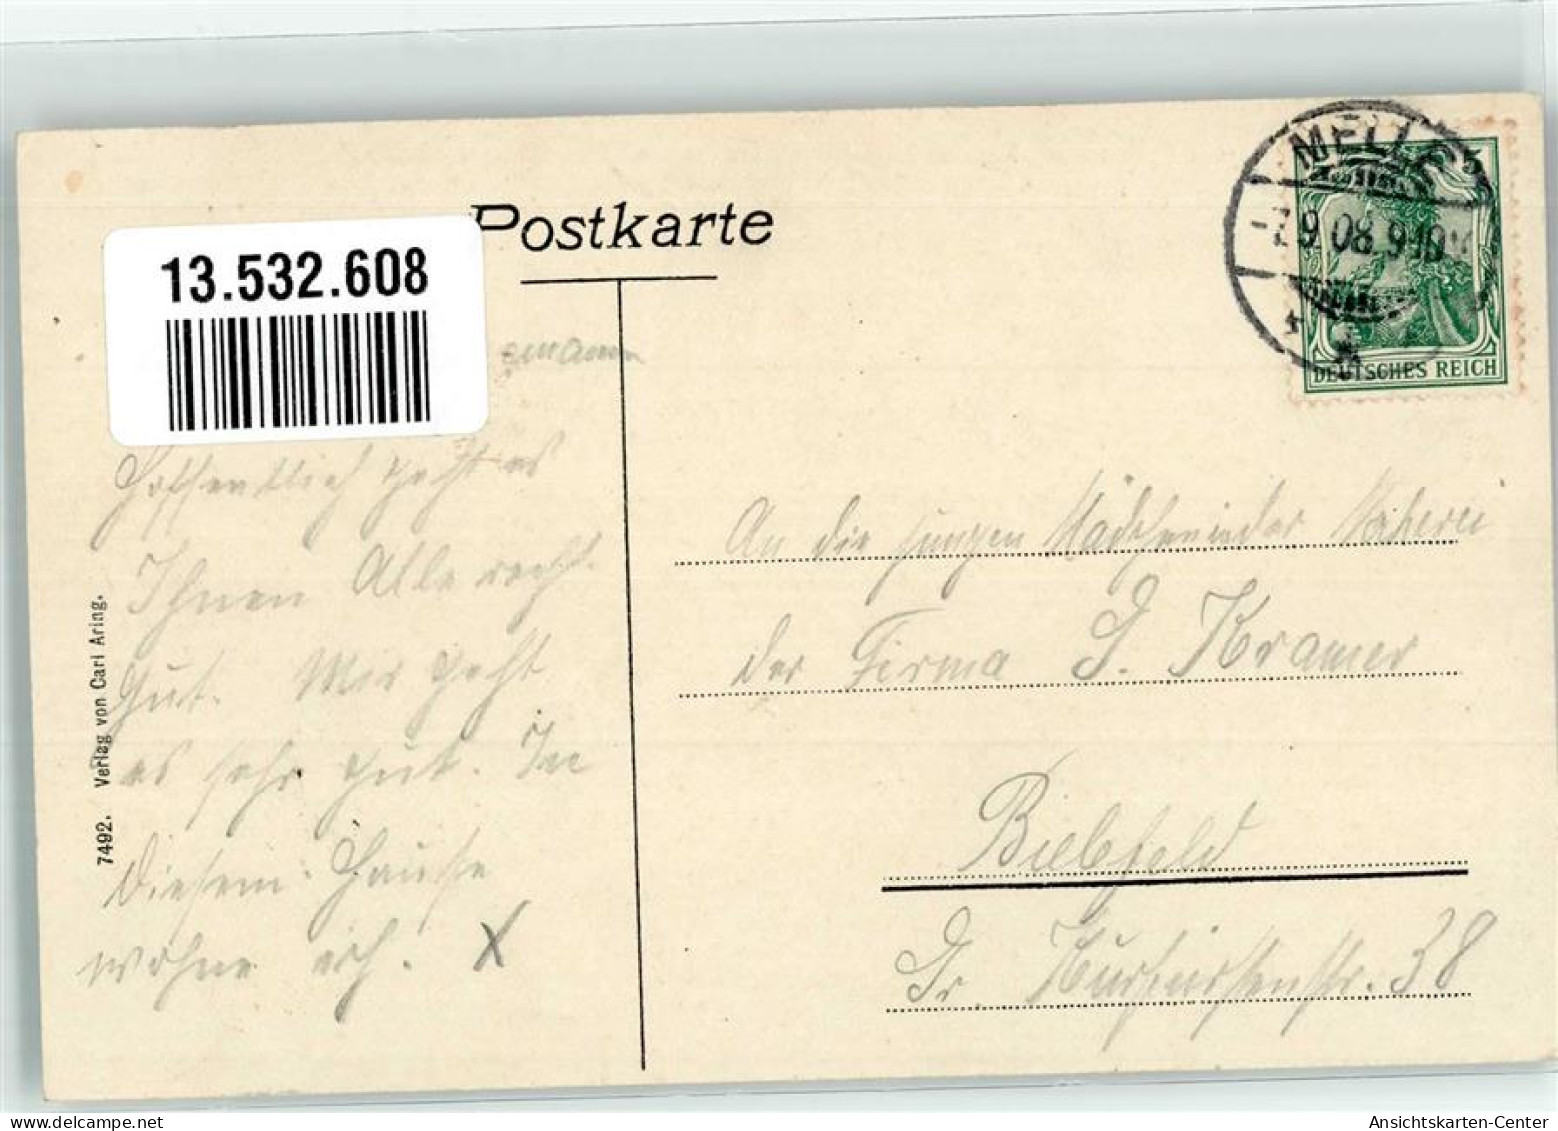 Postkarte
13.532.608
MELLE
9.08.9-10
DEUTSCHES REICH
Hoffentlich geht es
Ihnen Alle recht
Gut. Mir geht
es sehr gut. In
diesem Hause
wohne ich. X
7492. Verlag von Carl Aring.
An die jungen Mädchen in der Näherei
der Firma G. Kramer
Bielefeld
Gr. Kurfürstenstr. 38
delcampe.net
Ansichtskarten-Center